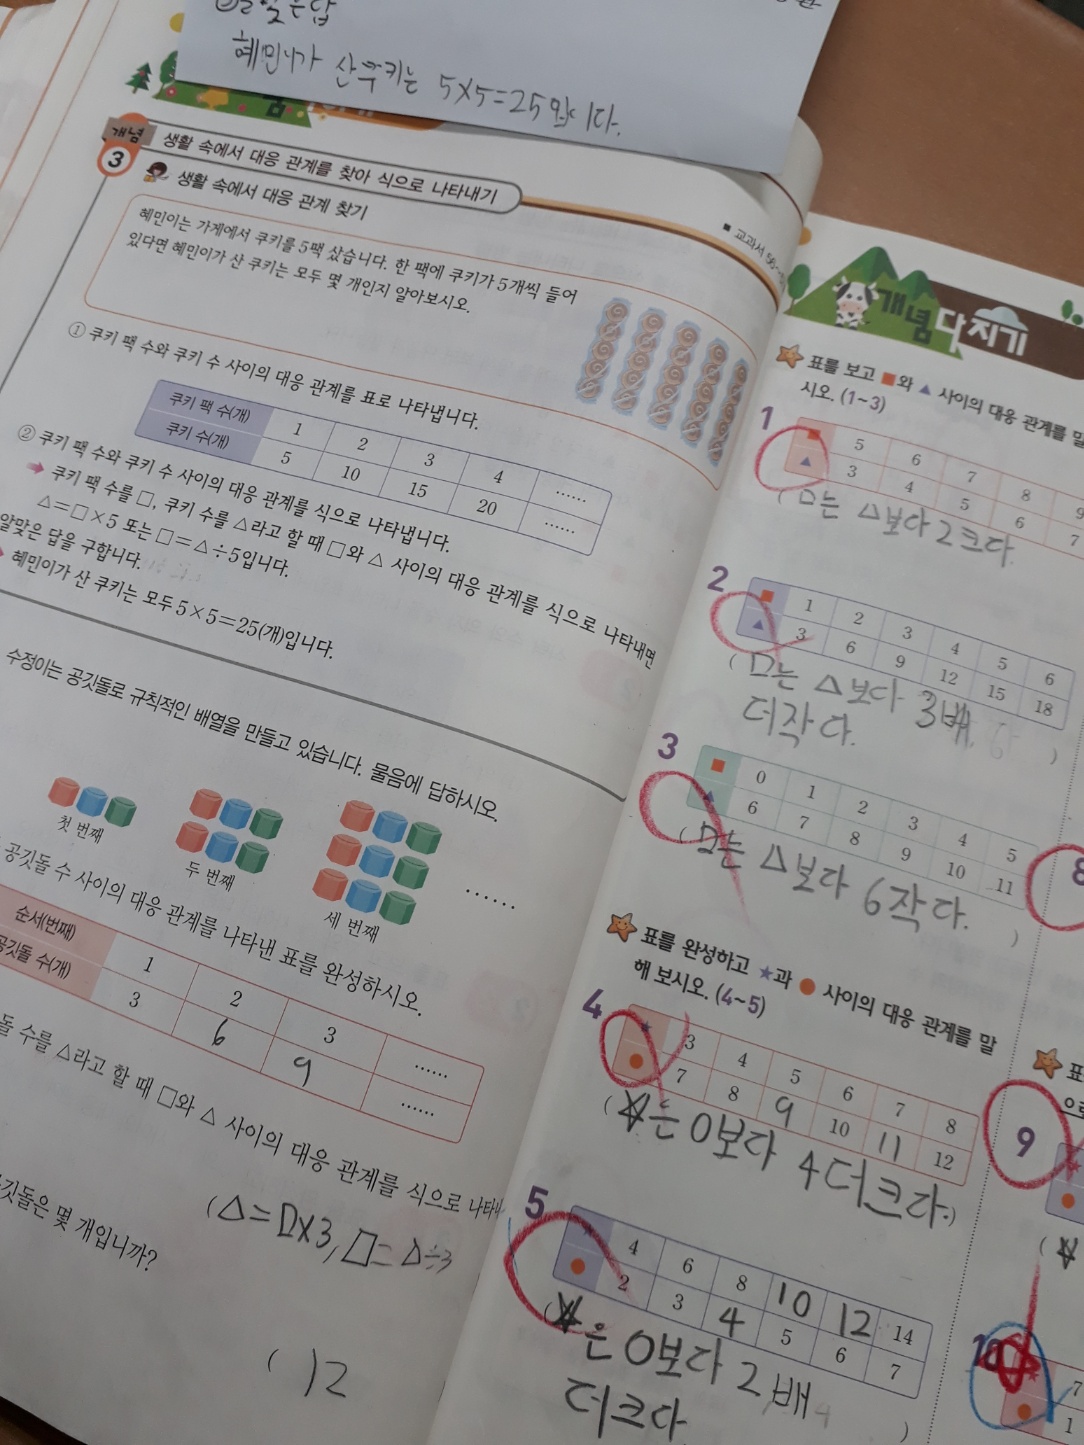 알맞은 답
혜민이가 산 쿠키는 5×5=25입니다.
개념
3
생활 속에서 대응 관계를 찾아 식으로 나타내기
생활 속에서 대응 관계 찾기
■ 교과서 56
혜민이는 가게에서 쿠키를 5팩 샀습니다. 한 팩에 쿠키가 5개씩 들어
있다면 혜민이가 산 쿠키는 모두 몇 개인지 알아보시오.
① 쿠키 팩 수와 쿠키 수 사이의 대응 관계를 표로 나타냅니다.
쿠키 팩 수(개) 1 2 3 4 ……
쿠키 수(개) 5 10 15 20 ……
② 쿠키 팩 수와 쿠키 수 사이의 대응 관계를 식으로 나타냅니다.
➡ 쿠키 팩 수를 □, 쿠키 수를 △라고 할 때 □와 △ 사이의 대응 관계를 식으로 나타내면
△=□×5 또는 □=△÷5입니다.
알맞은 답을 구합니다.
혜민이가 산 쿠키는 모두 5×5=25(개)입니다.
수정이는 공깃돌로 규칙적인 배열을 만들고 있습니다. 물음에 답하시오.
첫 번째
두 번째
세 번째
……
공깃돌 수 사이의 대응 관계를 나타낸 표를 완성하시오.
순서(번째) 1 2 3 ……
공깃돌 수(개) 3 6 9 ……
돌 수를 △라고 할 때 □와 △ 사이의 대응 관계를 식으로 나타내
( △=□×3, □=△÷3
깃돌은 몇 개입니까?
( 12
개념 다지기
표를 보고 ■와 ▲ 사이의 대응 관계를 말
시오. (1~3)
1
■ 5 6 7 8 9
▲ 3 4 5 6 7
( □는 △보다 2크다.
2
■ 1 2 3 4 5 6
▲ 3 6 9 12 15 18
( □는 △보다 3배
더작다. )
3
■ 0 1 2 3 4 5
▲ 6 7 8 9 10 11
( □는 △보다 6작다. )
표를 완성하고 ★과 ● 사이의 대응 관계를 말
해 보시오. (4~5)
4
★ 3 4 5 6 7 8
● 7 8 9 10 11 12
( ☆은 0보다 4더크다. )
5
4 6 8 10 12 14
● 2 3 4 5 6 7
( ☆은 0보다 2배
더크다 )
8
표
으로
9
( ☆
10
7
1